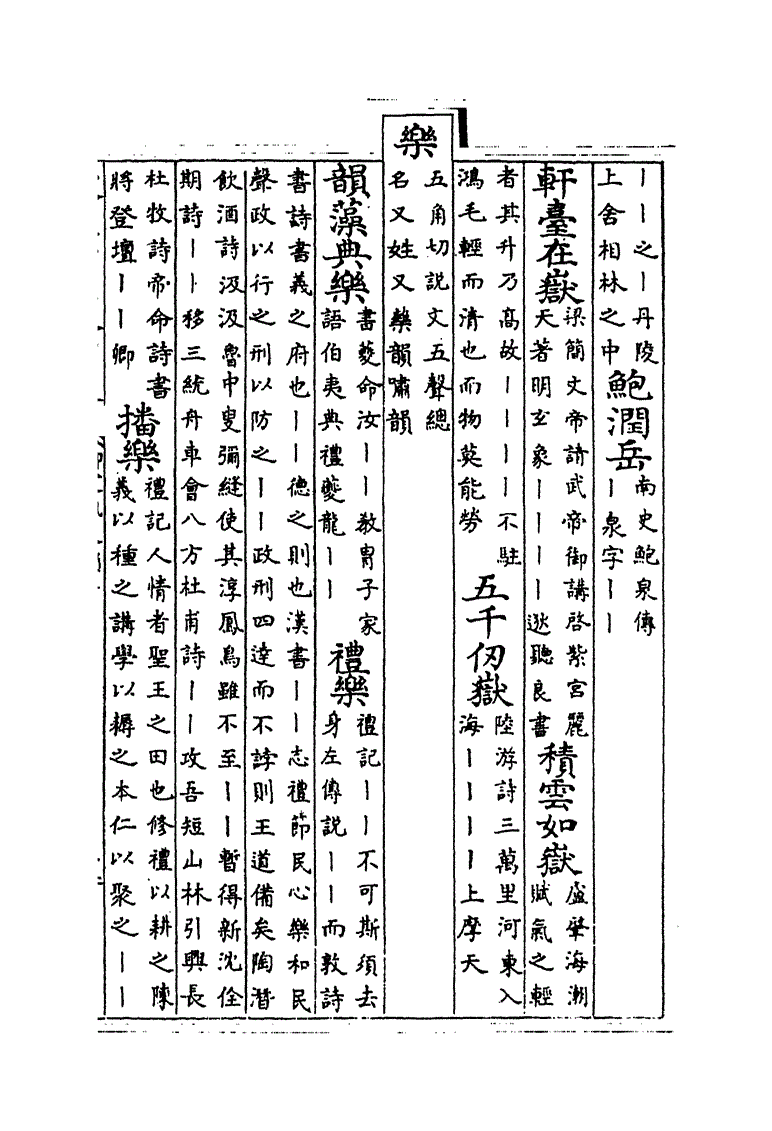 丨丨之丨丹陵
上舍相林之中
鮑潤岳
南史鮑泉傳
丨泉字丨丨
軒臺在嶽
梁簡文帝請武帝御講啓紫宮麗
天著明玄象丨丨丨丨逖聽良書
積雲如嶽
盧肇海潮
賦氣之輕
者其升乃高故丨丨丨丨不駐
鴻毛輕而清也而物莫能勞
五千仞嶽
陸游詩三萬里河東入
海丨丨丨丨上摩天
樂
五角切説文五聲總
名又姓又藥韻嘯韻
韻藻典樂
書夔命汝丨丨敎胄子家
語伯夷典禮夔龍丨丨
禮樂
禮記丨丨不可斯須去
身左傳説丨丨而敦詩
書詩書義之府也丨丨德之則也漢書丨丨志禮節民心樂和民
聲政以行之刑以防之丨丨政刑四達而不誖則王道備矣陶潛
飲酒詩汲汲魯中叟彌縫使其淳鳳鳥雖不至丨丨暫得新沈佺
期詩丨丨移三統舟車會八方杜甫詩丨丨攻吾短山林引興長
杜牧詩帝命詩書
將登壇丨丨卿
播樂
禮記人情者聖王之田也修禮以耕之陳
義以種之講學以耨之本仁以聚之丨丨